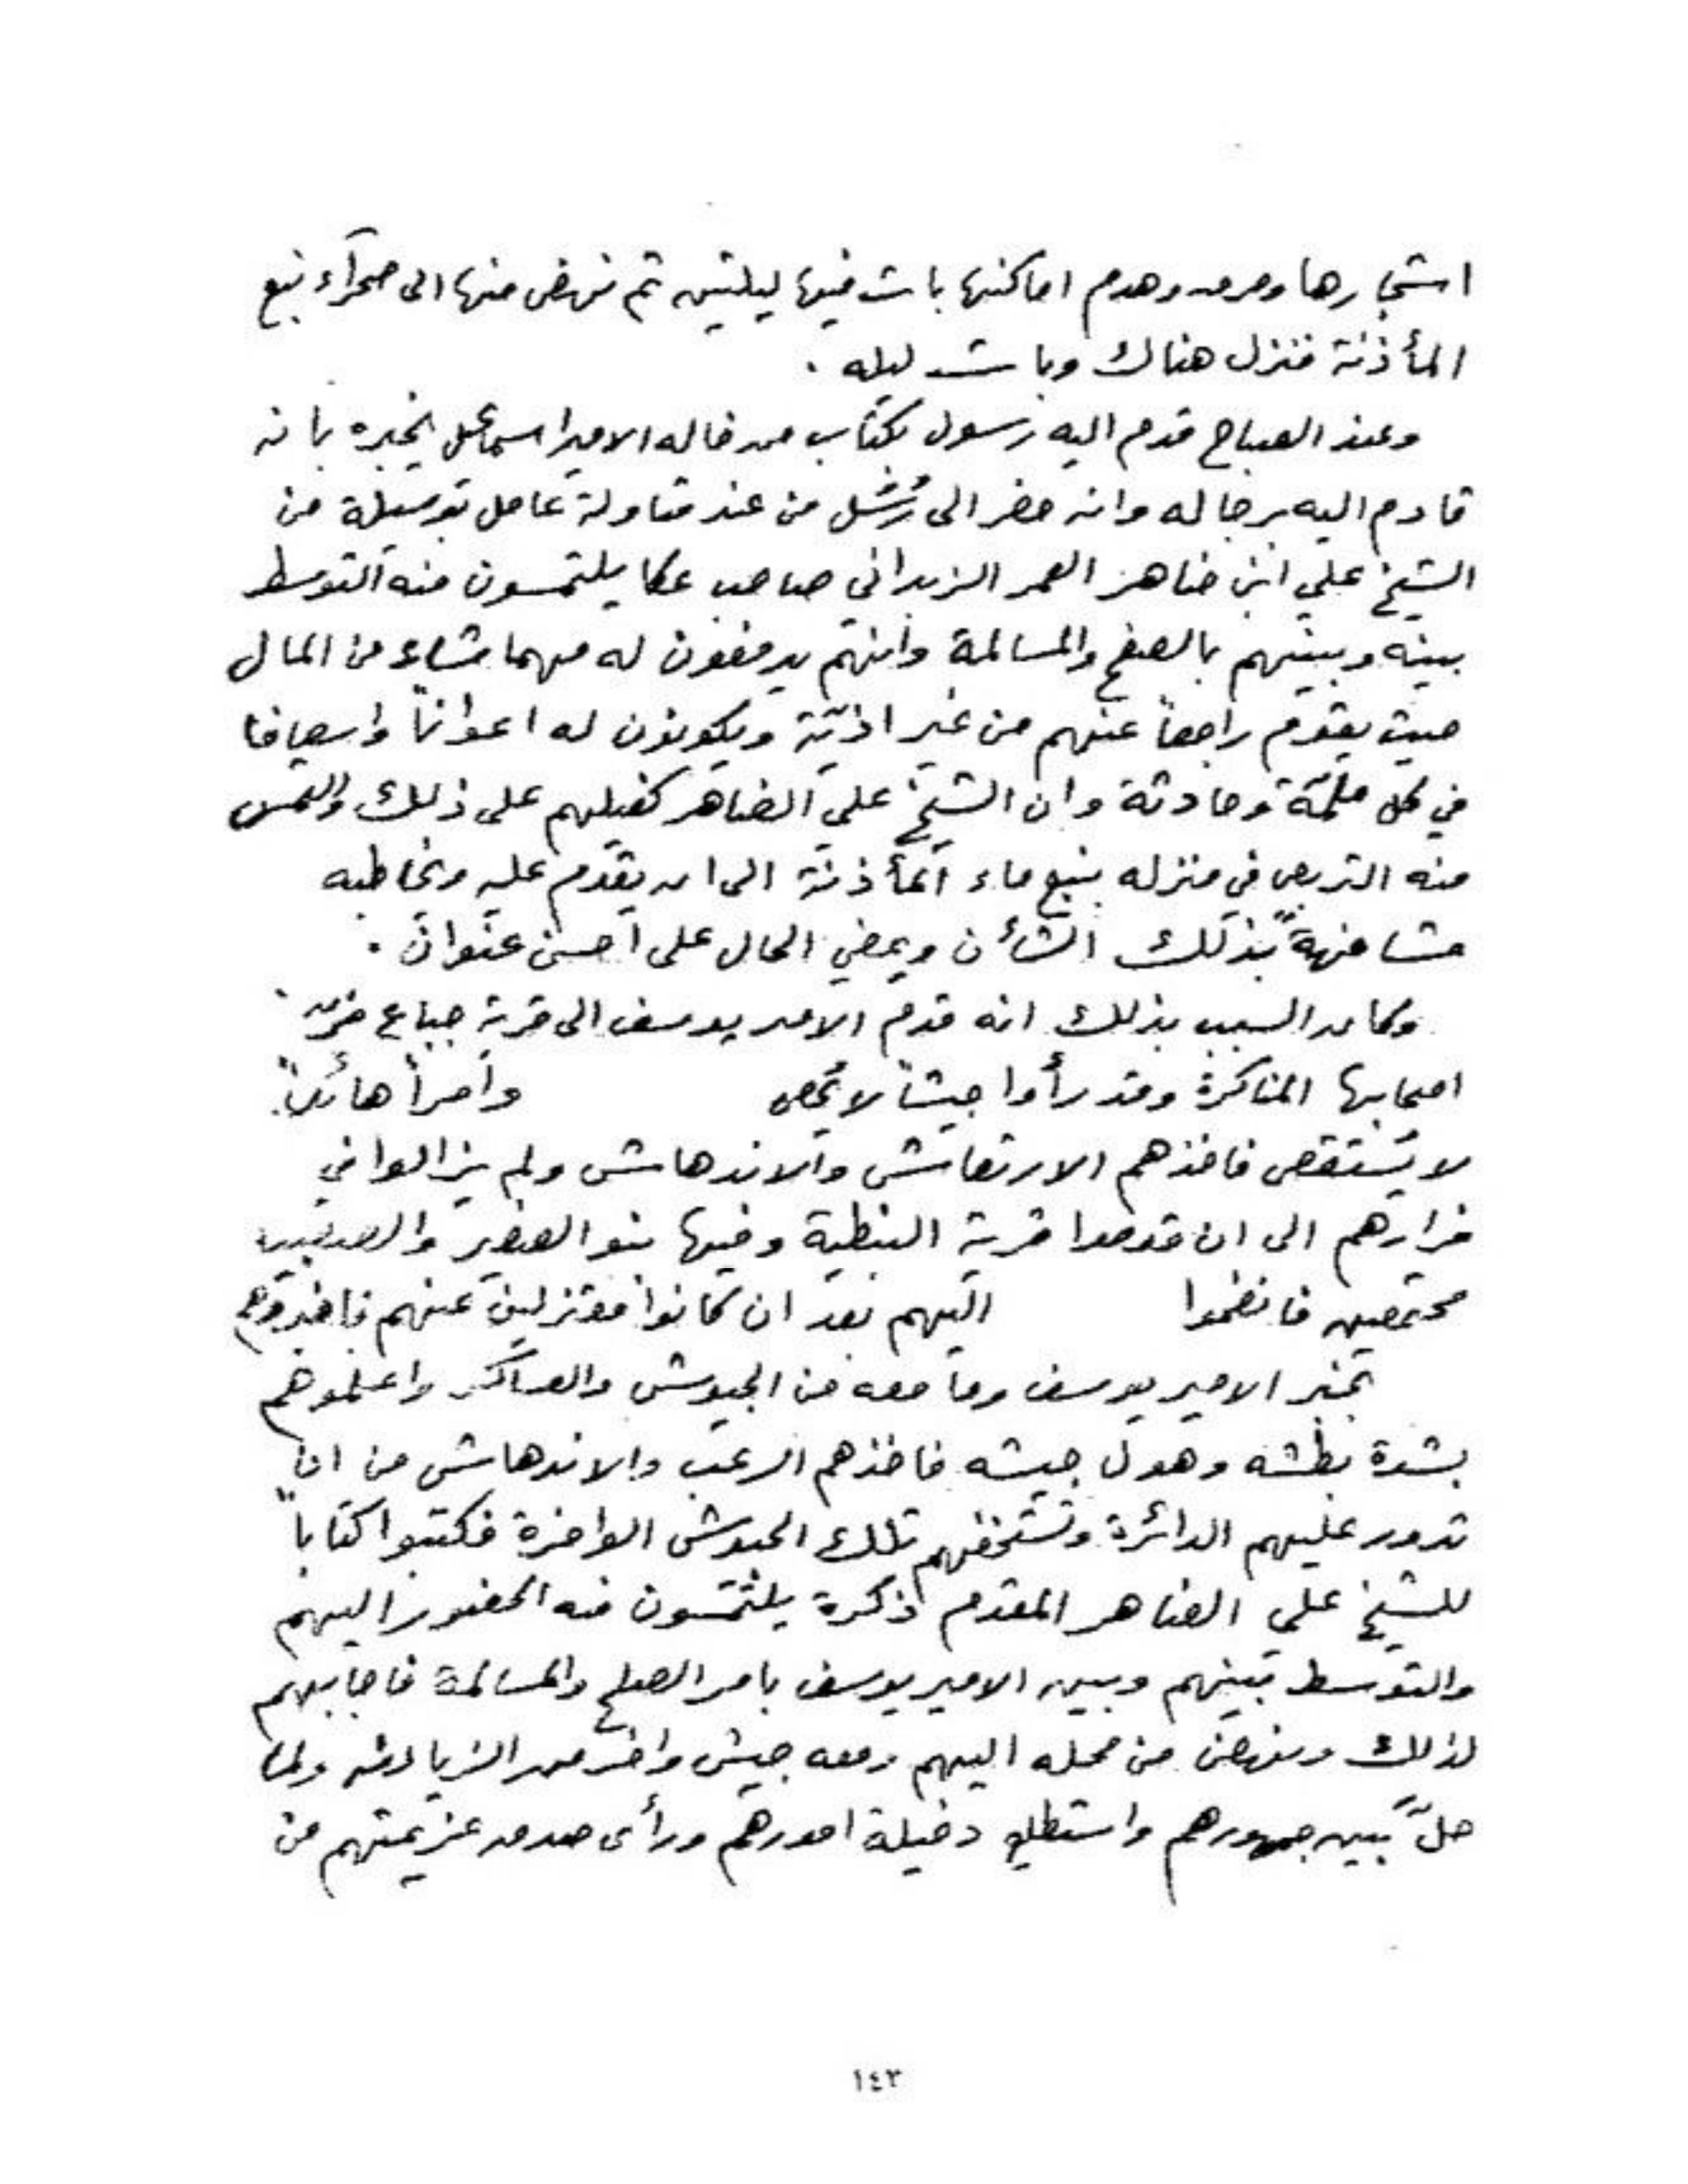 اشجارها وحرق وهدم اماكنها بات فيها ليلتين ثم نهض منها الى صحرآء نبع
المأذنة فنزل هناك وبات ليله .
وعند الصباح قدم اليه رسول بكتاب من خاله الامير اسماعيل يخبره بانه
قادم اليه برجاله وانه حضر الى رُسُل من عند متاولة عامل بوسيلة من
الشيخ علي ابن ضاهر العمر الزيداني صاحب عكا يلتمسون منه التوسط
بينه وبينهم بالصفح والمسالمة وأنهم يدفعون له مهما شاء من المال
حيث يقوم راجعاً عنهم من غير اذيّة ويكونون له اعواناً واسعافا
في كل ملمّة وحادثة وان الشيخ علي الضاهر كفيلهم على ذلك والتمس
منه التربص في منزله بنبع ماء المأذنة الى ان يقدم عليه ويخاطبه
مشافهةً بذلك الشأن ويمضي الحال على احسن عنوان .
وكان السبب بذلك انه قدم الامير يوسف الى قرية جباع
اصحابها المناكرة وقد رأوا جيشاً لا يُحص وأمراً هائلاً
لا يستقص فاخذهم الارتعاش والاندهاش ولم يزالوا في
فرارهم الى ان قدموا قرية النبطية وفيها بنو الصغير والصعبيين
مجتمعين فانضموا اليهم بعد ان كانوا معتزلين عنهم فاخبروهم
بخبر الامير يوسف وما معه من الجيوش والعساكر واعلموهم
بشدة بطشه وهول جيشه فاخذهم الرعب والاندهاش من ان
تدور عليهم الدائرة وتستخفهم تلك الجيوش الوافرة فكتبوا كتاباً
للشيخ علي الضاهر المقدم ذكرة يلتمسون منه الحضور اليهم
والتوسط بينهم وبين الامير يوسف بامر الصلح والمسالمة فاجابهم
لذلك ونهض من محله اليهم ومعه جيش وافر من الزيادنه ولما
حلّ بين جمهورهم واستطلع دخيلة امورهم ورأى صدق عزيمتهم من
١٤٣